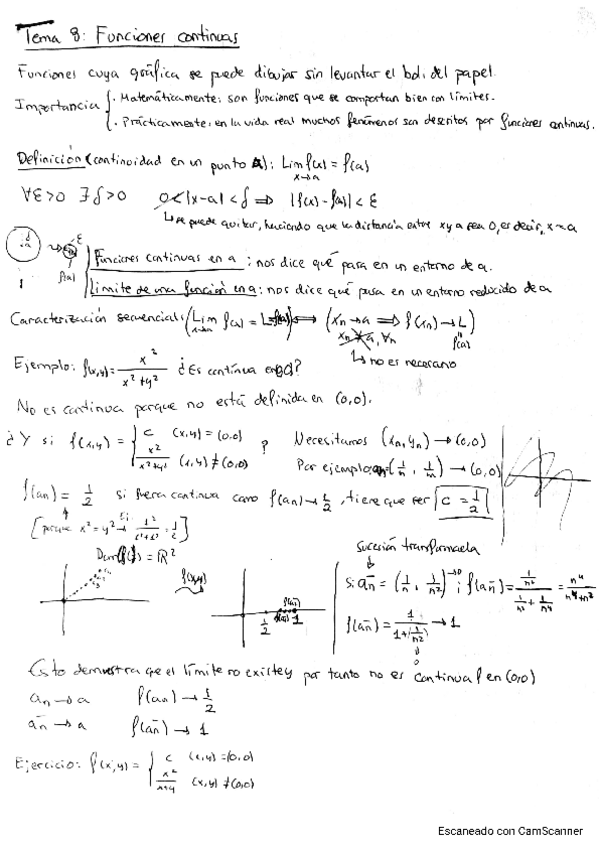 Tema 8: Funciones continuas
Funciones cuya gráfica se puede dibujar sin levantar el boli del papel.
Importancia { . Matemáticamente: son funciones que se comportan bien con límites.
. Prácticamente: en la vida real muchos fenómenos son descritos por funciones continuas.
Definición (continuidad en un punto a): Lim f(x) = f(a)
x→a
∀ε>0 ∃δ>0 0<|x-a|<δ ⟹ |f(x)-f(a)|<ε
↳ se puede quitar, haciendo que la distancia entre x y a sea 0, es decir, x=a
Funciones continuas en a: nos dice qué pasa en un entorno de a.
f(a)
Límite de una función en a: nos dice qué pasa en un entorno reducido de a
Caracterización secuencial: (Lim f(x) = L=f(a)) ⟺ (xn→a ⟹ f(xn)→L)
x→a xn≠a, ∀n f(a)
↳ no es necesario
Ejemplo: f(x,y) = x²/(x²+y²) ¿Es continua en ?
No es continua porque no está definida en (0,0).
¿Y si f(x,y) = { c (x,y)=(0,0) ? Necesitamos (xn,yn)→(0,0)
x²/(x²+y²) (x,y)≠(0,0) Por ejemplo an=(1/n, 1/n)→(0,0)
f(an) = 1/2 si fuera continua como f(an)→1/2, tiene que ser c = 1/2
[porque x²=y² → 1²/(1²+1²) = 1/2]
Dom(f) = ℝ² Sucesión transformada
f(x,y) f(an) Si ān = (1/n, 1/n²)→0; f(ān) = (1/n²)/(1/n²+1/n⁴) = n⁴/(n⁴+n²)
1/2 f(an) 1 f(ān) = 1/(1+(1/n²)) → 1
0
Esto demuestra que el límite no existe y por tanto no es continua f en (0,0)
an → a f(an) → 1/2
ān → a f(ān) → 1
Ejercicio: f(x,y) = { c (x,y)=(0,0)
x²/(x+y) (x,y)≠(0,0)
Escaneado con CamScanner